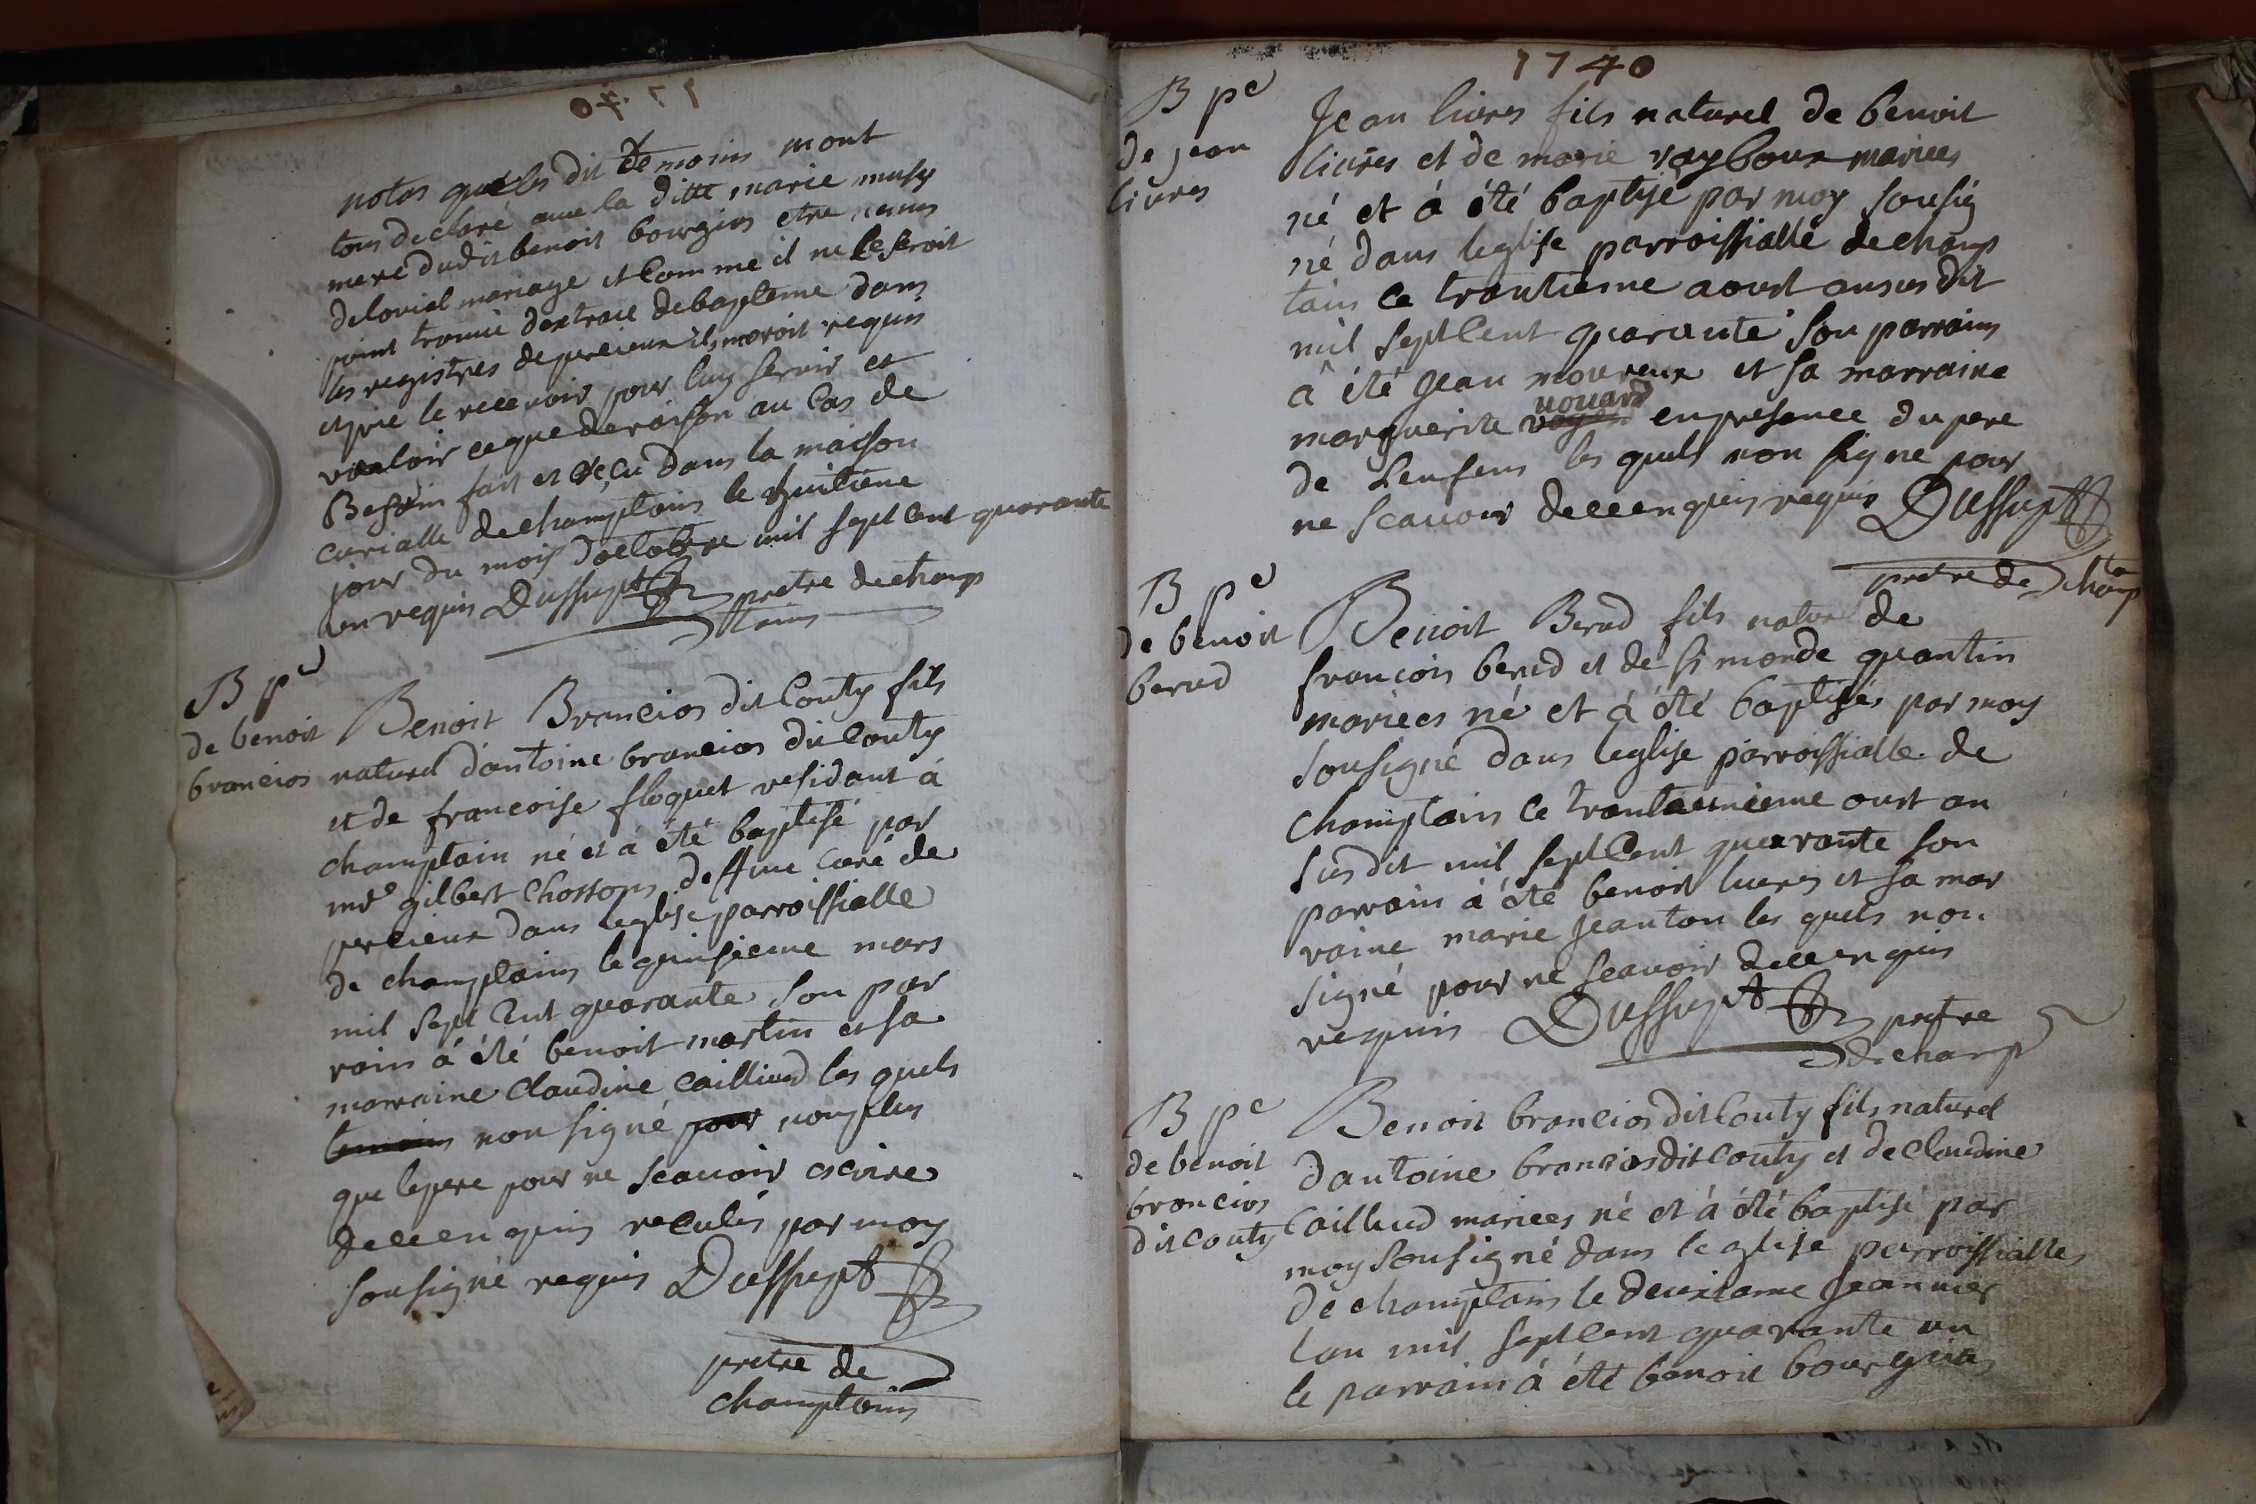 notas que les dit temoins mont
tous declaré avec la ditte marie musy
mere dudit benoit bourgios etre
de loviel mariage et Comme il ne se seroit
point trouvé dextrait de bapteme dans
les registres de percieux ils moroit requis
le recevoir pour luy servir et
valoir ce que de raison au Cas de
Besoin fait et reçu dans la maison
curialle de champtains le huitieme
jour du mois doctobre mil sept Cent quarante
en requis Dussupt pretre de champ
tains
B pe
de benoit
brancios
Benoit Brancios dit Couty fils
naturel dantoine brancios dit Couty
et de francoise floquet residant á
champtain né et á été baptisé par
mre gilbert Chossons curé de
percieux dans leglise parroissialle
de champtains le quinsieme mars
mil sept Cent quarante son par
rain á été benoit martin et sa
marraine Claudine Cailliud les quels
non signé non plus
que le pere pour ne scavoir escrire
de ce enquis par moy
sousigné requis Dussupt
pretre de
champtains
1740
B pe
de jean
livres
Jean livres fils naturel de benoit
livres et de marie rayboux mariees
né et á été baptisé par moy sousig
né dans leglise parroissialle de champ
tain ce trantieme aoust susdit
mil sept Cent quarante son parrain
á été Jean moureux et sa marraine
marguerite vouard en presence du pere
de Lenfens les quels non signe pour
ne scavoir de ce enquis requis Dussupt
pretre de champ
ta
B pe
de benoit
berud
Benoit Berud fils naturel de
francois berud et de simonde quantin
mariees né et á été baptisés par moy
sousigné dans leglise parroissialle de
champtains ce oust an
susdit mil sept Cent quarante son
parrain á été benoit livres et sa mar
raine marie jeanton les quels non
signé pour ne scavoir de ce enquis
requis Dussupt pretre
de champ
B pe
de benoit
brancios
dit Couty
Benoit brancios dit Couty fils naturel
dantoine brancios dit Couty et de Claudine
Cailliud mariees né et á été baptisé par
moy sousigné dans leglise parroissialle
de champtains le deuxieme jeanvier
lan mil sept Cent quarante un
le parrain á été benoit bourgios